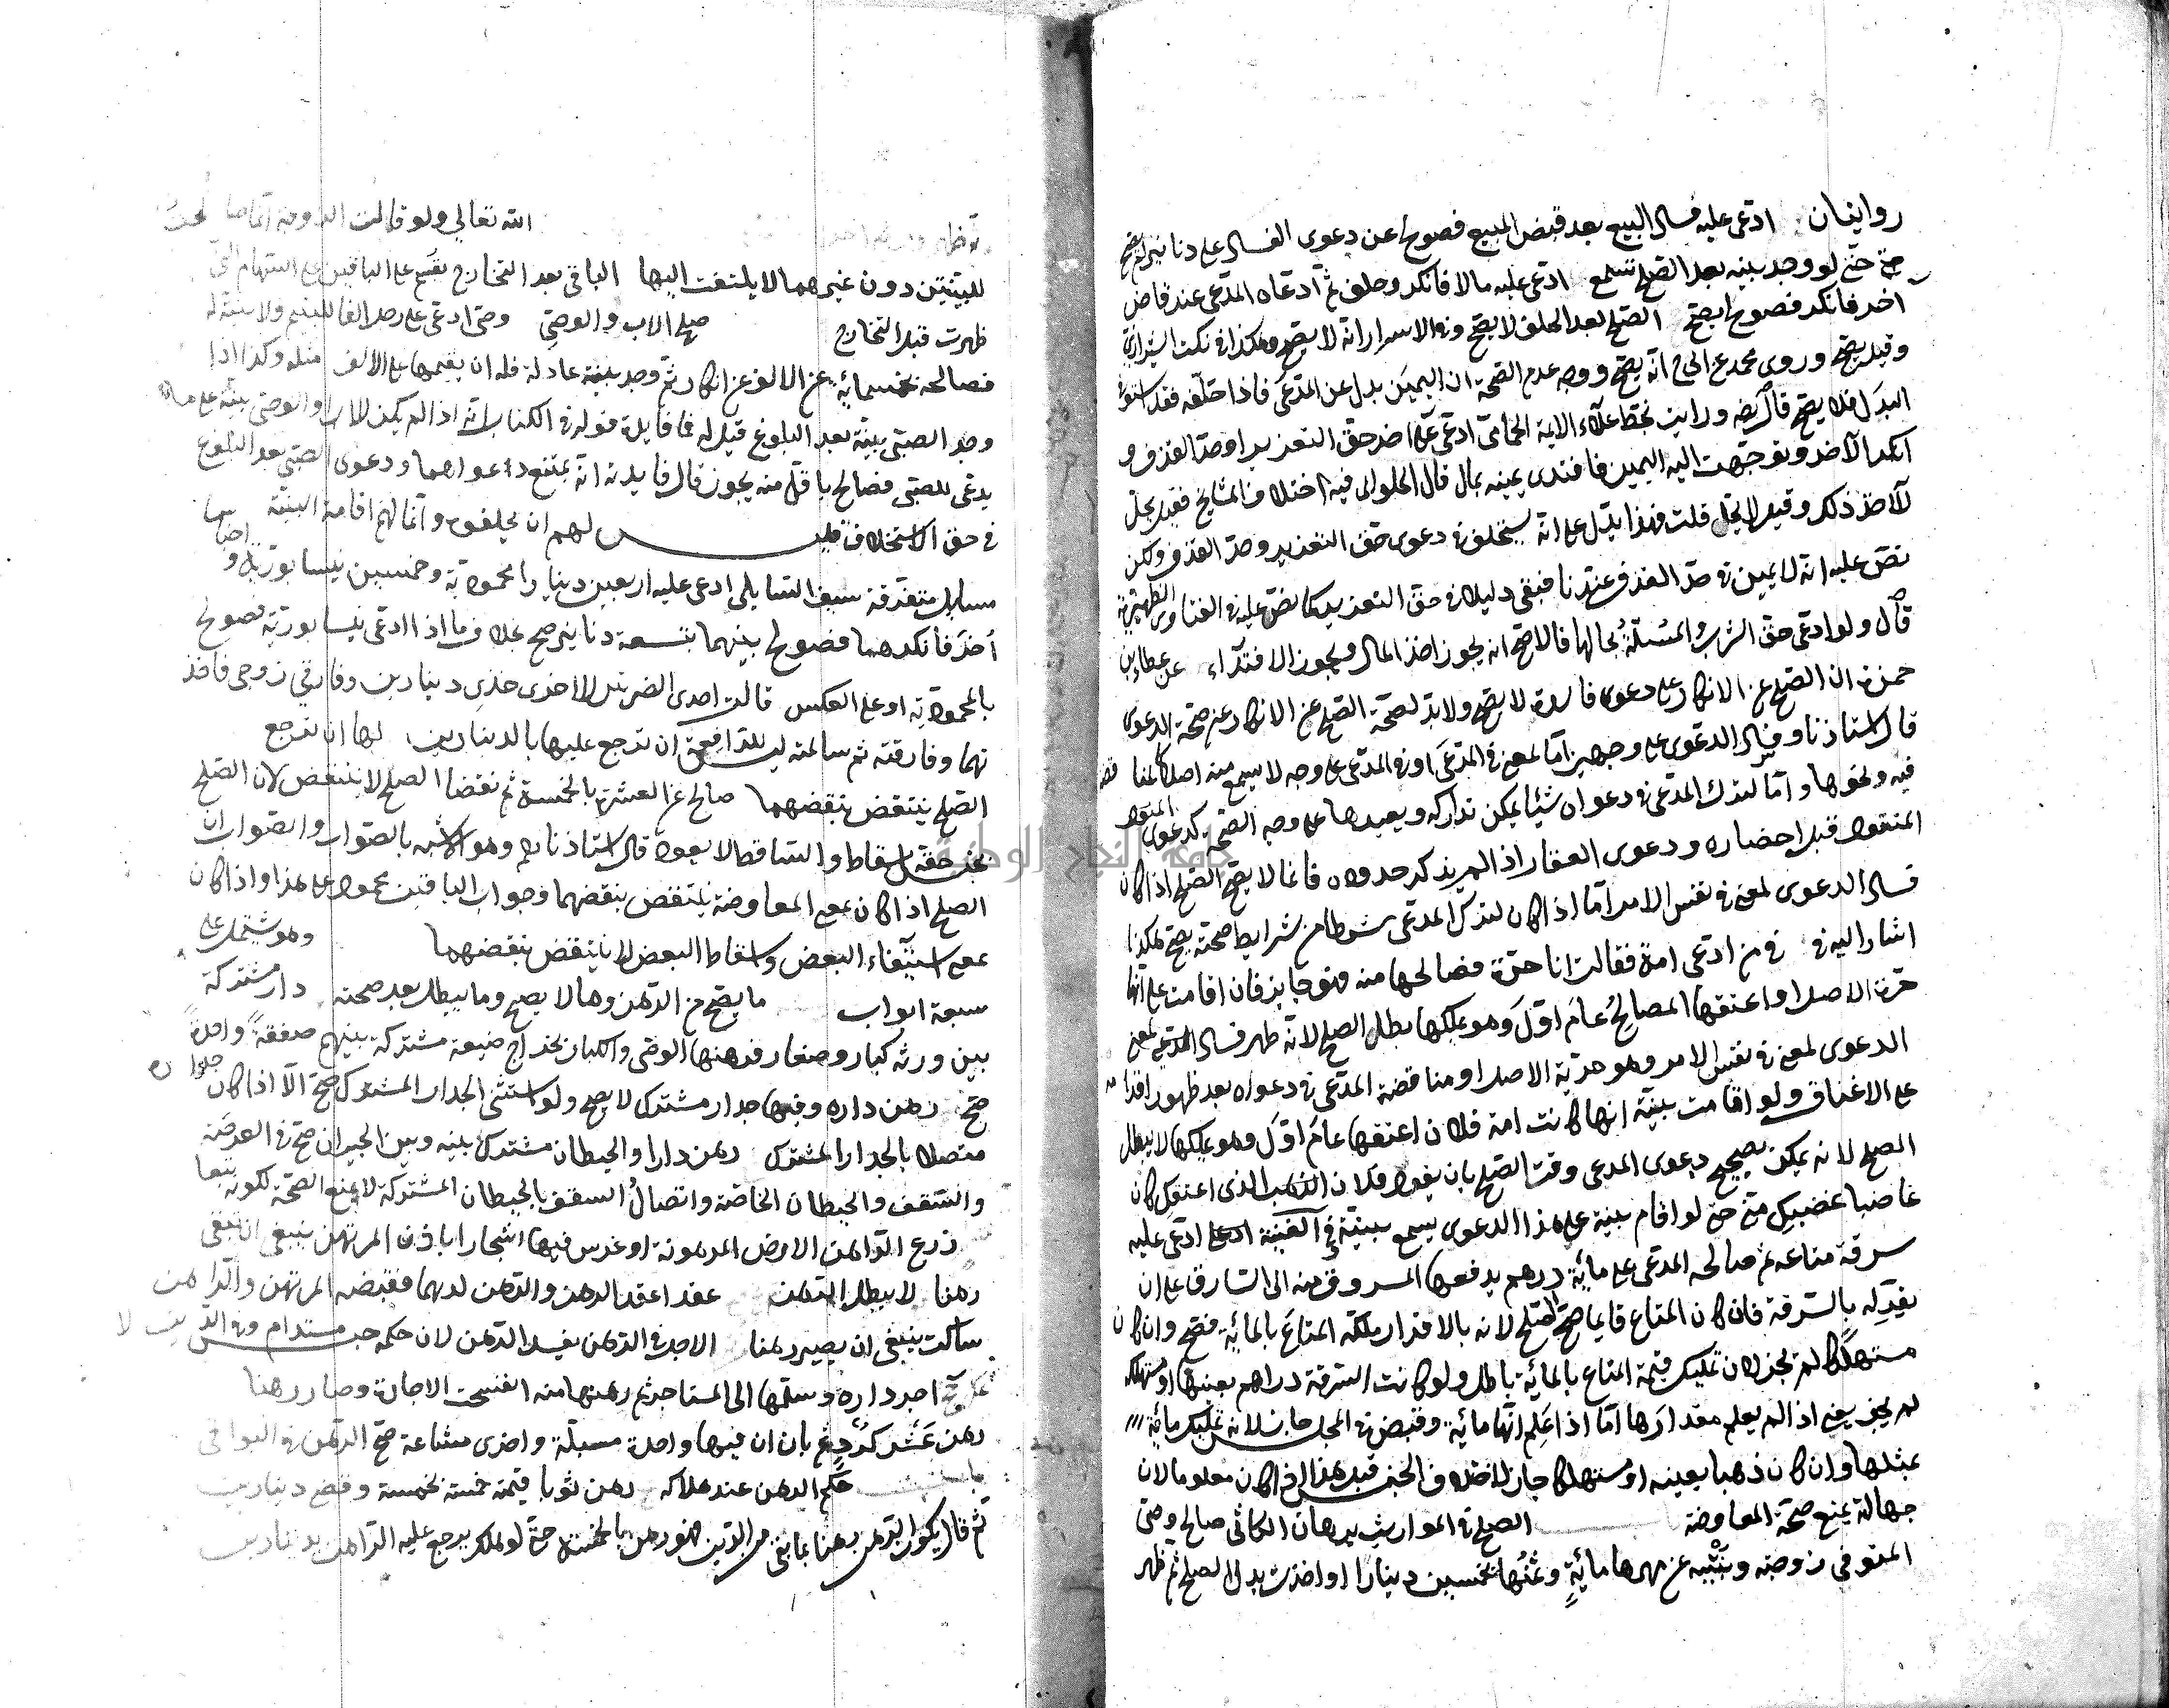 روايتان ادعى عليه فساد البيع بعد قبض المبيع فصولح عن دعوى الفساد على دنانير لم يصح
حتى لو وجد بينة بعد الصلح تسمع ادعى عليه مالا فانكر وحلف ثم ادعاه المدعى عند قاض
اخر فانكر فصولح يصح الصلح بعد الحلف لا يصح وفي الاسرار انه لا يصح وهكذا في نكت الشيرازي
وقيل يصح وروى محمد عن ابي ح انه يصح ووجه عدم الصحة ان اليمين بدل عن المدعى فاذا حلفه فقد استوفى
البدل فلا يصح قال رضه ورايت بخط علاء الايمة الحمامي ادعى على اخر حق التعزير او حد القذف و
انكر الاخر وتوجهت اليه اليمين فافتدى يمينه بمال قال الحلواي فيه اختلاف المشايخ فقيل يحل
للاخذ ذلك وقيل لا يحل قلت فهذا يدل على انه يستحلف في دعوى حق التعزير وحد القذف ولكن
نص عليه انه لا يمين في حد القذف عندنا فبقي دليلا في حق التعزير كما نص عليه في الفتاوى الظهيرية
قال ولو ادعى حق الشرب والمسئلة بحالها فالاصح انه يجوز اخذ المال ويجوز الافتداء عن عطاء بن
حمزة ان الصلح عن الانكار على دعوى فاسدة لا يصح ولا بد لصحة الصلح عن الانكار عن صحة الدعوى
قال استاذنا وفساد الدعوى على وجهين اما لمعنى في المدعى او في المدعى على وجه لا يسمع منه اصلا كالمناقضة
فيه ونحوها واما لترك المدعى في دعواه شيئا يمكن تداركه ويعيدها على وجه الصحة كدعوى
المنقول قبل احضاره ودعوى العقار اذا لم يذكر حدوده فانما لا يصح الصلح اذا كان
فساد الدعوى لمعنى في نفس الامر اما اذا كان لترك المدعى شرطا من شرايط صحته يصح هكذا
اشار اليه في في من ادعى امة فقالت انا حرة فصالحها منه فهو جايز فان اقامت على انها
حرة الاصل او اعتقها المصالح عام اول وهو يملكها بطل الصلح لانه ظهر فساد الدعوى لمعنى
الدعوى لمعنى في نفس الامر وهو حرية الاصل او مناقضة المدعى في دعواه بعد ظهور اقراره
على الاعتاق ولو اقامت بينة انها كانت امة فلان اعتقها عام اول وهو يملكها لا يبطل
الصلح لانه يمكن تصحيح دعوى المدعى وقت الصلح بان يقول فلان الذي اعتقك كان
غاصبا غصبك مني حتى لو اقام بينة على هذا الدعوى يسمع ادعى عليه
سرقة متاعه ثم صالحه المدعى على مائة درهم يدفعها المسروق منه الى السارق على ان
يقر له بالسرقة فان كان المتاع قايما صح الصلح لانه بالاقرار ملكه المتاع بالمائة فصح وان كان
مستهلكا لم يجز لان تمليك قيمة المتاع بالمائة باطل ولو كانت السرقة دراهم بعينها او مستهلكة
لم يجز يعني اذا لم يعلم مقدارها اما اذا علم انها مائة وقبض في المجلس جاز لانه تمليك مائة
بمثلها وان كان ذهبا بعينه او مستهلكا جاز لاختلاف الجنس قيل هذا اذا كان معلوما لان
جهالة يمنع صحة المعاوضة الصلح في المواريث برهان الكاثي صالح وصى
المتوفى زوجته وبنتيه عن مهرها مائة وثمنها بخمسين دينارا واخذت بدل الصلح ثم ظهر
الله تعالى ولو قالت الزوجة انما صالحت
للبنتين دون غيرهما لا يلتفت اليها الباقي بعد التخارج يقسم على الباقين على السهام التي
ظهرت قبل التخارج صلح الاب والوصي وصى ادعى على رجل الفا لليتيم ولا بينة له
فصالحه بخمسمائة عن الالف عن انكار ثم وجد بينة عادلة فله ان يقيمها على الالف مثله وكذا اذا
وجد الصبي بينة بعد البلوغ قيل له فما فايدة قوله في الكتاب انه اذا لم يكن للاب والوصي بينة على ما
يدعى للصبي فصالح باقل منه يجوز قال فايدته انه يمتنع دعواهما ودعوى الصبي بعد البلوغ
في حق الاستحلاف فليس لهم ان يحلفوه وانما لهم اقامة البينة
مسايل متفرقة سيف السايلي ادعى عليه اربعين دينارا محمودية وخمسين نيسابورية و
اخذ فانكرهما فصولح بينهما بتسعة دنانير صح بخلاف ما اذا ادعى نيسابورية فصولح
بالمحمودية او على العكس قالت احدى الضرتين للاخرى خذي دينارين وفارقي زوجي فاخذ
تهما وفارقته ثم سالمته ليس للدافعة ان ترجع عليها بالدينارين لها ان ترجع
الصلح ينتقض بنقضهما صالح عن العشرة بالخمسة ثم نقضا الصلح لا ينتقض لان الصلح
عن حقه اسقاط والساقط لا يعود قال استاذنا رح وهو الاشبه بالصواب والصواب ان
الصلح اذا كان بمعنى المعاوضة ينتقض بنقضهما وجواب الباقين محمول على هذا واذا كان
بمعنى استيفاء البعض واسقاط البعض لا ينتقض بنقضهما وهو يشتمل على
سبعة ابواب ما يصح من الرهن وما لا يصح وما يبطل بعد صحته دار مشتركة
بين ورثة كبار وصغار فرهنها الوصى والكبار بخراج ضيعة مشتركة بينهم صفقة واحدة
صح رهن داره وفيها جدار مشترك لا يصح ولو استثنى الجدار المشترك صح الا اذا كان
متصلا بالجدار المشترك رهن دارا والحيطان مشتركة بينه وبين الجيران صح في العرصة
والسقف والحيطان الخاصة واتصال السقف بالحيطان المشتركة لا يمنع الصحة لكونه تبعا
زرع الراهن الارض المرهونة او غرس فيها اشجارا باذن المرتهن ينبغي ان تبقى
رهنا لا يبطل الرهن عقد اعقد الرهن والرهن لديهما فقبضه المرتهن والراهن
ساكت ينبغي ان يصير رهنا الاجل في الرهن يفسد الرهن لان حكمه حبس مستدام وفي الدين لا
اجر داره وسلمها الى المستاجر ثم رهنها منه انفسخت الاجارة وصار رهنا
رهن عشر بان ان فيها واحدة مسبلة واخرى مشاعة صح الرهن في البواقي
حكم الرهن عند هلاكه رهن ثوبا قيمته خمسة بخمسة وقضى دينارين
ثم قال يكون الرهن رهنا بما بقي من الدين فهو رهن بالخمسة حتى لو هلك يرجع عليه الراهن بدينارين